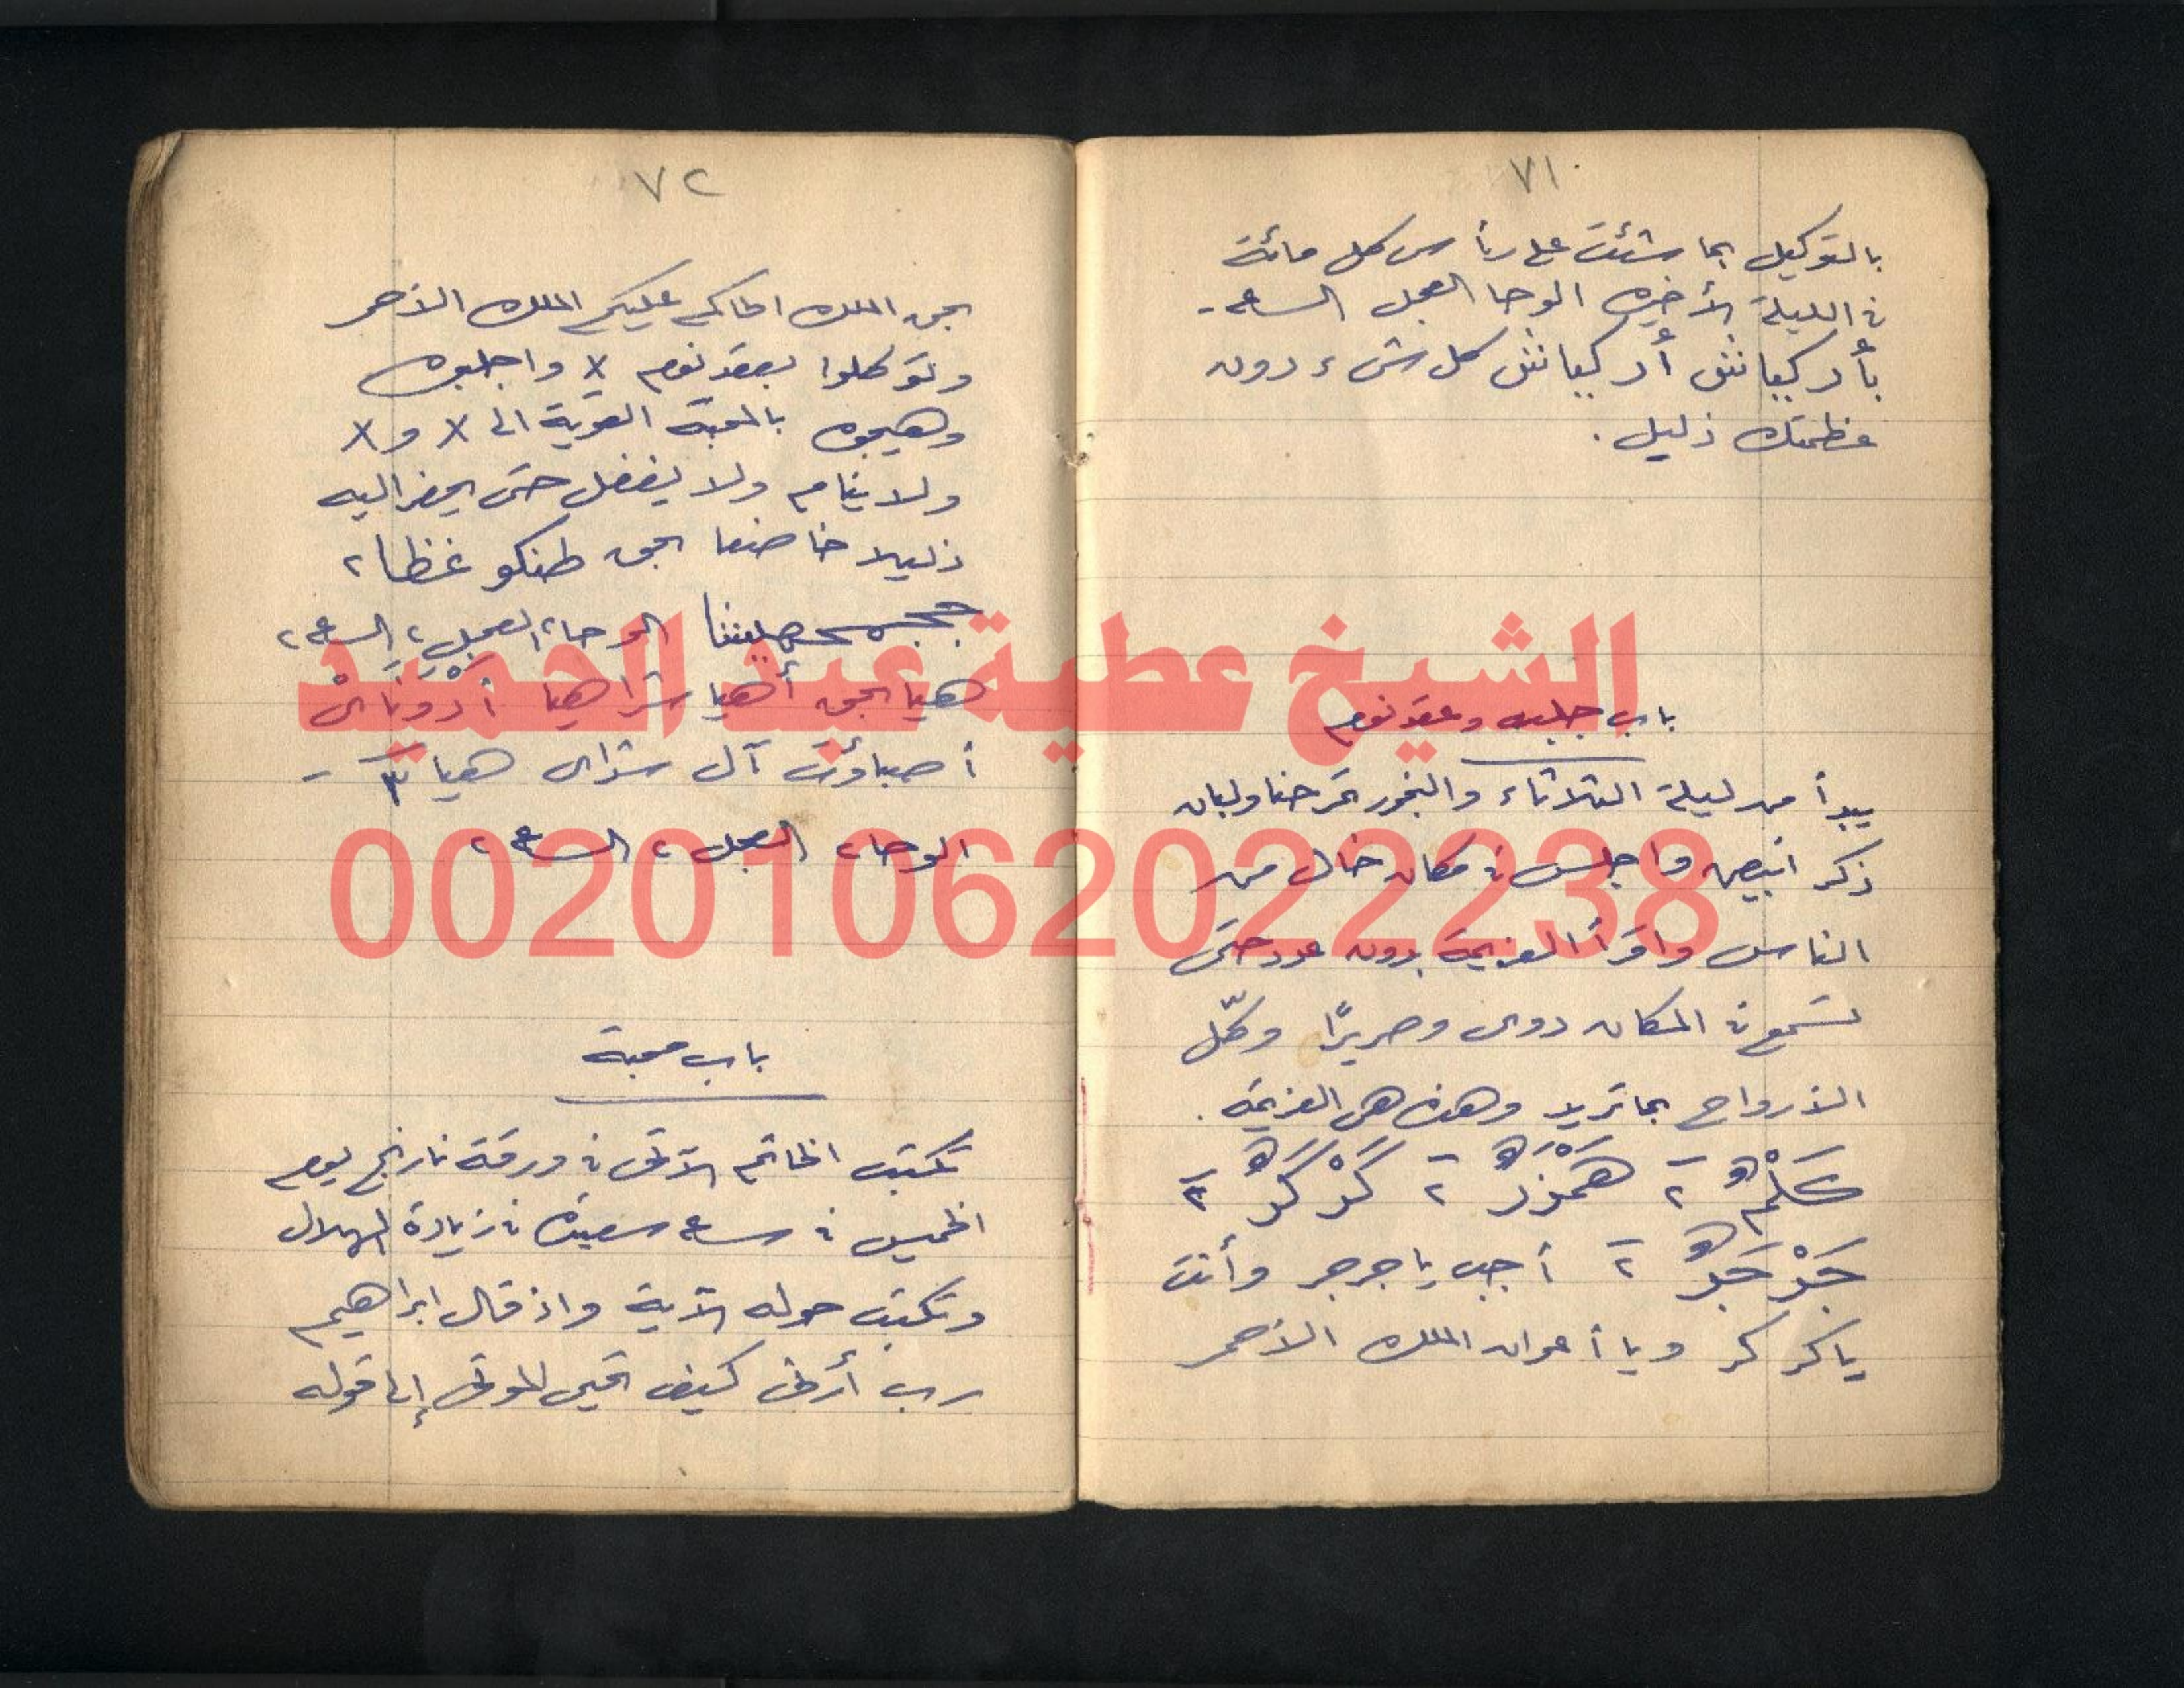 ٧١
بالتوكيل بما شئت على رأس كل مائة
في الليلة الأخيره الوحا العجل الساعه
بأدركيانش أدركيانش كل شئ دون
عظمتك ذليل .
باب جلب وعقد نوم
يبدأ من ليلة الثلاثاء والبخور تمر حنا ولبان
ذكر ابيض واجلس في مكان خال من
الناس واقرأ العزيمة بدون عدد حتى
تسمع في المكان دوى وصريرًا وكّل
الأرواح بما تريد وهذه هي العزيمة .
٢ ٢ كَرْكَرٍ ٢
جَرْجَرٍ ٢ أجب يا جرجر وأنت
يا كركر ويا أعوان الملك الأحمر
٧٢
بحق الملك الحاكم عليكم الملك الأحمر
وتوكلوا بعقد نوم x واجلبوه
وهيجوه بالمحبة القوية الى x و x
ولا ينام ولا يغفل حتى يحضر اليه
ذليلا خاضعا بحق ٢
الوحا ٢ العجل ٢ الساعه ٢
هيا بحق أهيا شراهيا أدْونَاىْ
أصباؤت آل شداى هيا ٣
الوحا ٢ العجل ٢ الساعه ٢
باب محبة
تكتب الخاتم الآتى في ورقة نارنج يوم
الخميس في ساعه سعيدة في زيادة الهلال
وتكتب حوله الآية واذ قال ابراهيم
رب أرنى كيف تحيى الموتى إلى قوله
الشيخ عطية عبد الحميد
00201062022238